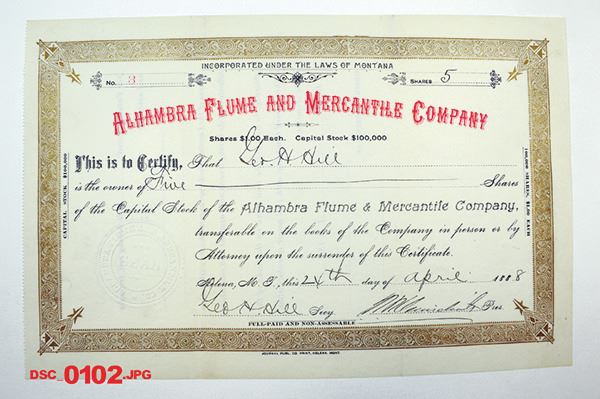 INCORPORATED UNDER THE LAWS OF MONTANA
No. 3 SHARES 5
ALHAMBRA FLUME AND MERCANTILE COMPANY
Shares $1.00 Each. Capital Stock $100,000
This is to Certify, That Geo. H Hill
is the owner of Five Shares
of the Capital Stock of the Alhambra Flume & Mercantile Company,
transferable on the books of the Company in person or by
Attorney upon the surrender of this Certificate.
Helena, M. T., this 24th day of April 1888
Geo H Hill Secy. Pres.
FULL-PAID AND NON-ASSESSABLE
CAPITAL STOCK $100,000
100,000 SHARES, $1.00 EACH
JOURNAL PUBL. CO PRINT, HELENA, MONT.
DSC_0102.JPG